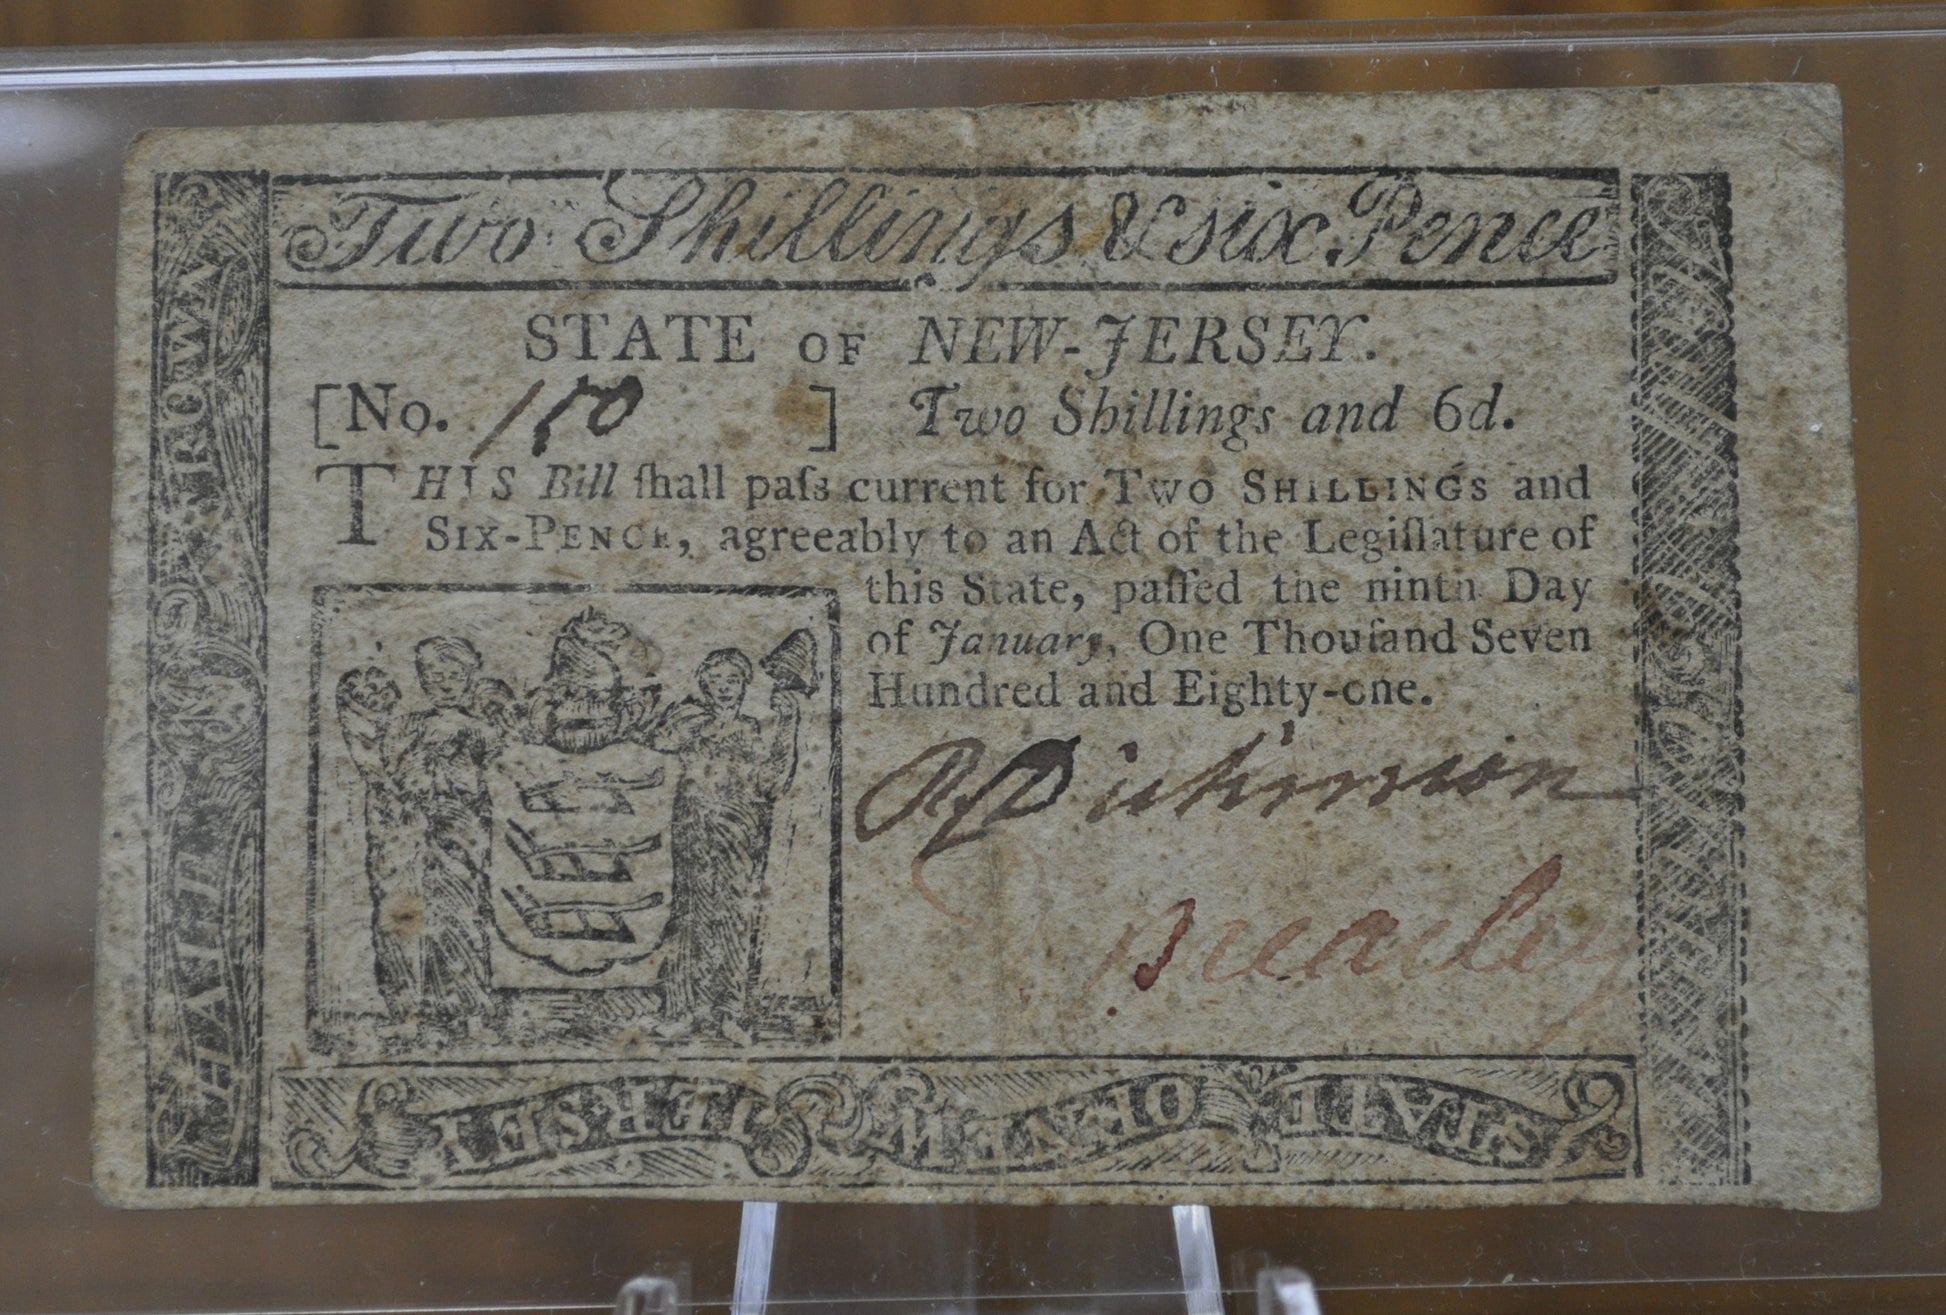 Two Shillings & six Pence
STATE OF NEW-JERSEY.
[No. 150 ] Two Shillings and 6d.
THIS Bill ſhall paſs current for TWO SHILLINGS and
SIX-PENCE, agreeably to an Act of the Legiſlature of
this State, paſſed the ninth Day
of January, One Thouſand Seven
Hundred and Eighty-one.
P Dickinson
D Brearley
HALF A CROWN
STATE OF NEW JERSEY